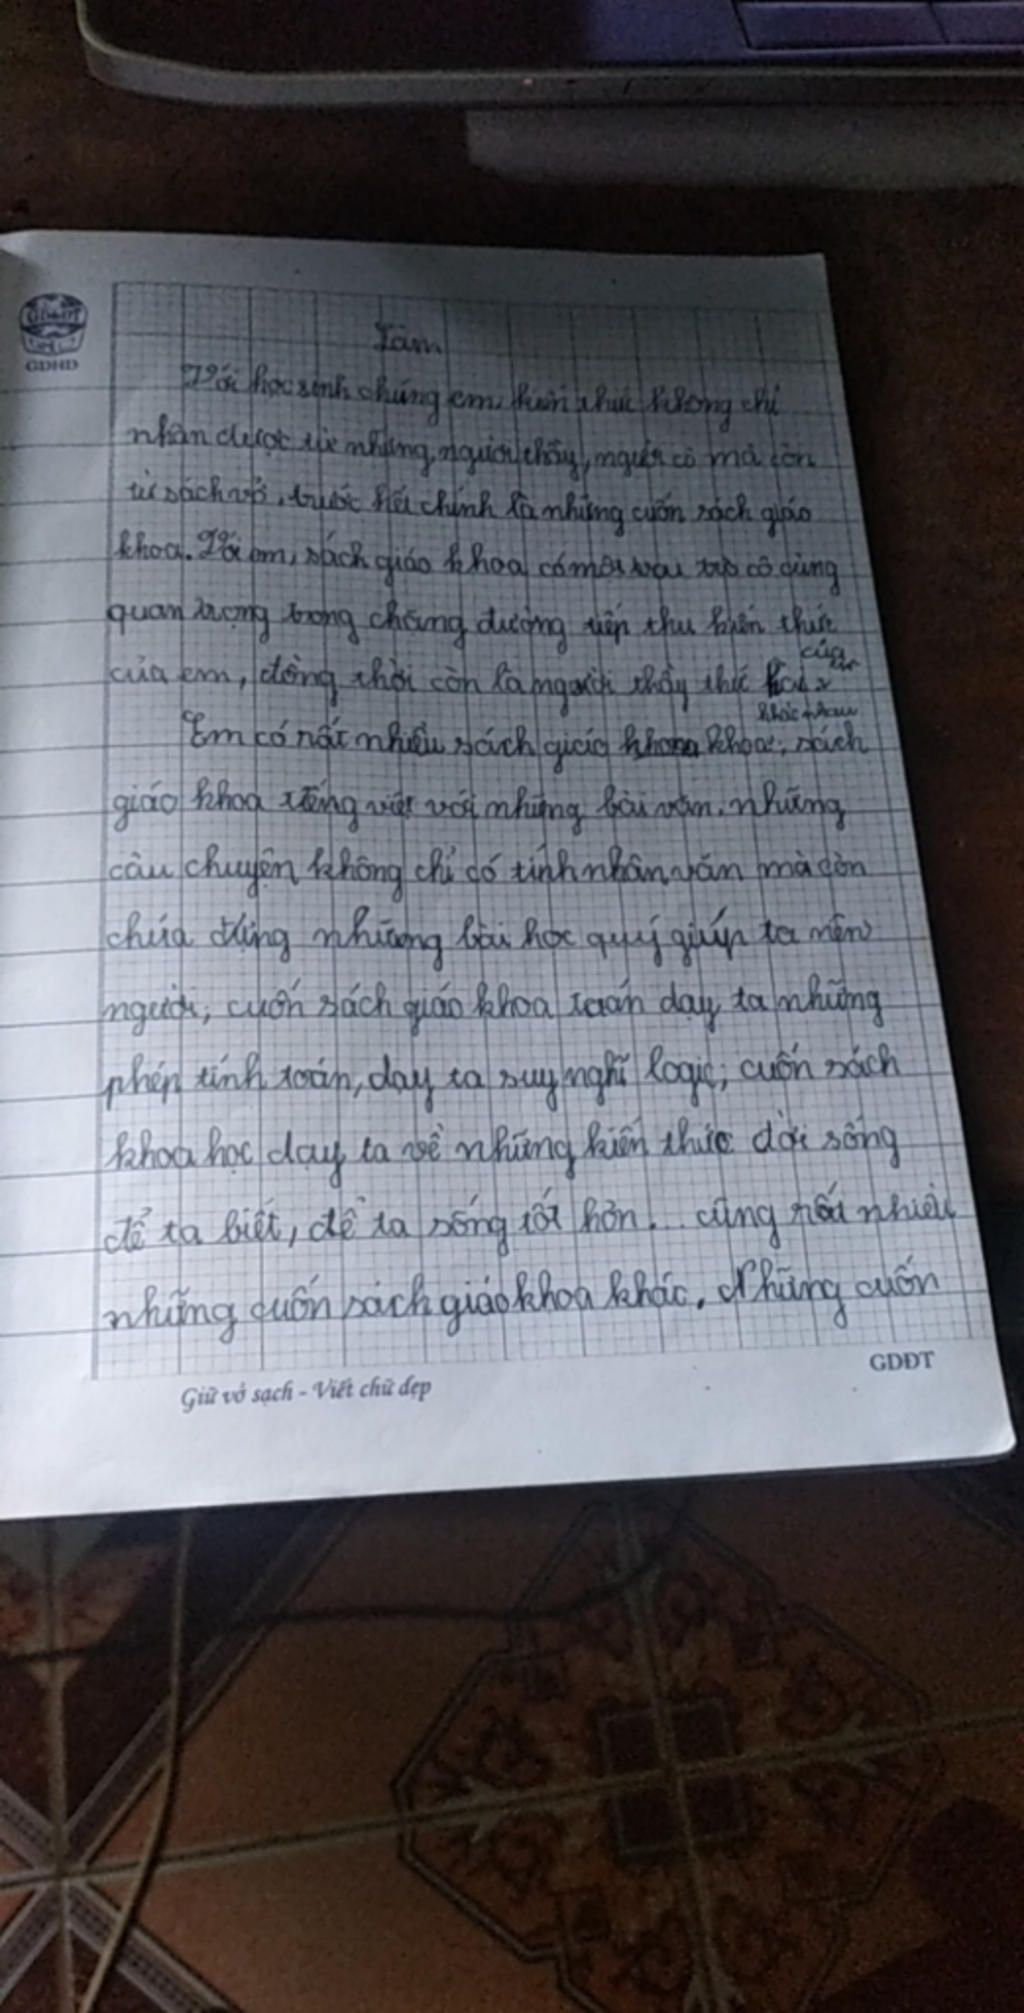 GDHD
Làm
Với học sinh chúng em, kiến thức không chỉ
nhận được từ những người thầy, người cô mà còn
từ sách vở, trước hết chính là những cuốn sách giáo
khoa. Với em, sách giáo khoa có một vai trò cô cùng
quan trọng trong chặng đường tiếp thu kiến thức
của em, đồng thời còn là người thầy thứ hai của
khác nhau
Em có rất nhiều sách giáo khoa, sách
giáo khoa tiếng việt với những bài văn, những
câu chuyện không chỉ có tính nhân văn mà còn
chứa đựng những bài học quý giúp ta nên
người, cuốn sách giáo khoa toán dạy ta những
phép tính toán, dạy ta suy nghĩ logic, cuốn sách
khoa học dạy ta về những kiến thức đời sống
để ta biết, để ta sống tốt hơn. cũng rất nhiều
những cuốn sách giáo khoa khác. Những cuốn
GDĐT
Giữ vở sạch - Viết chữ đẹp